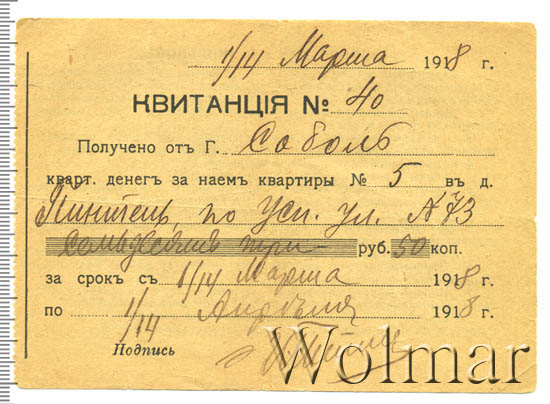 1/14 Марта 1918 г.
КВИТАНЦІЯ № 40
Получено отъ Г. Соболь
кварт. денег за наем квартиры № 5 въ д.
по Усп. ул. № 73
семьдесятъ три руб. 50 коп.
за срокъ съ 1/14 Марта 1918 г.
по 1/14 Апрѣля 1918 г.
Подпись
Wolmar